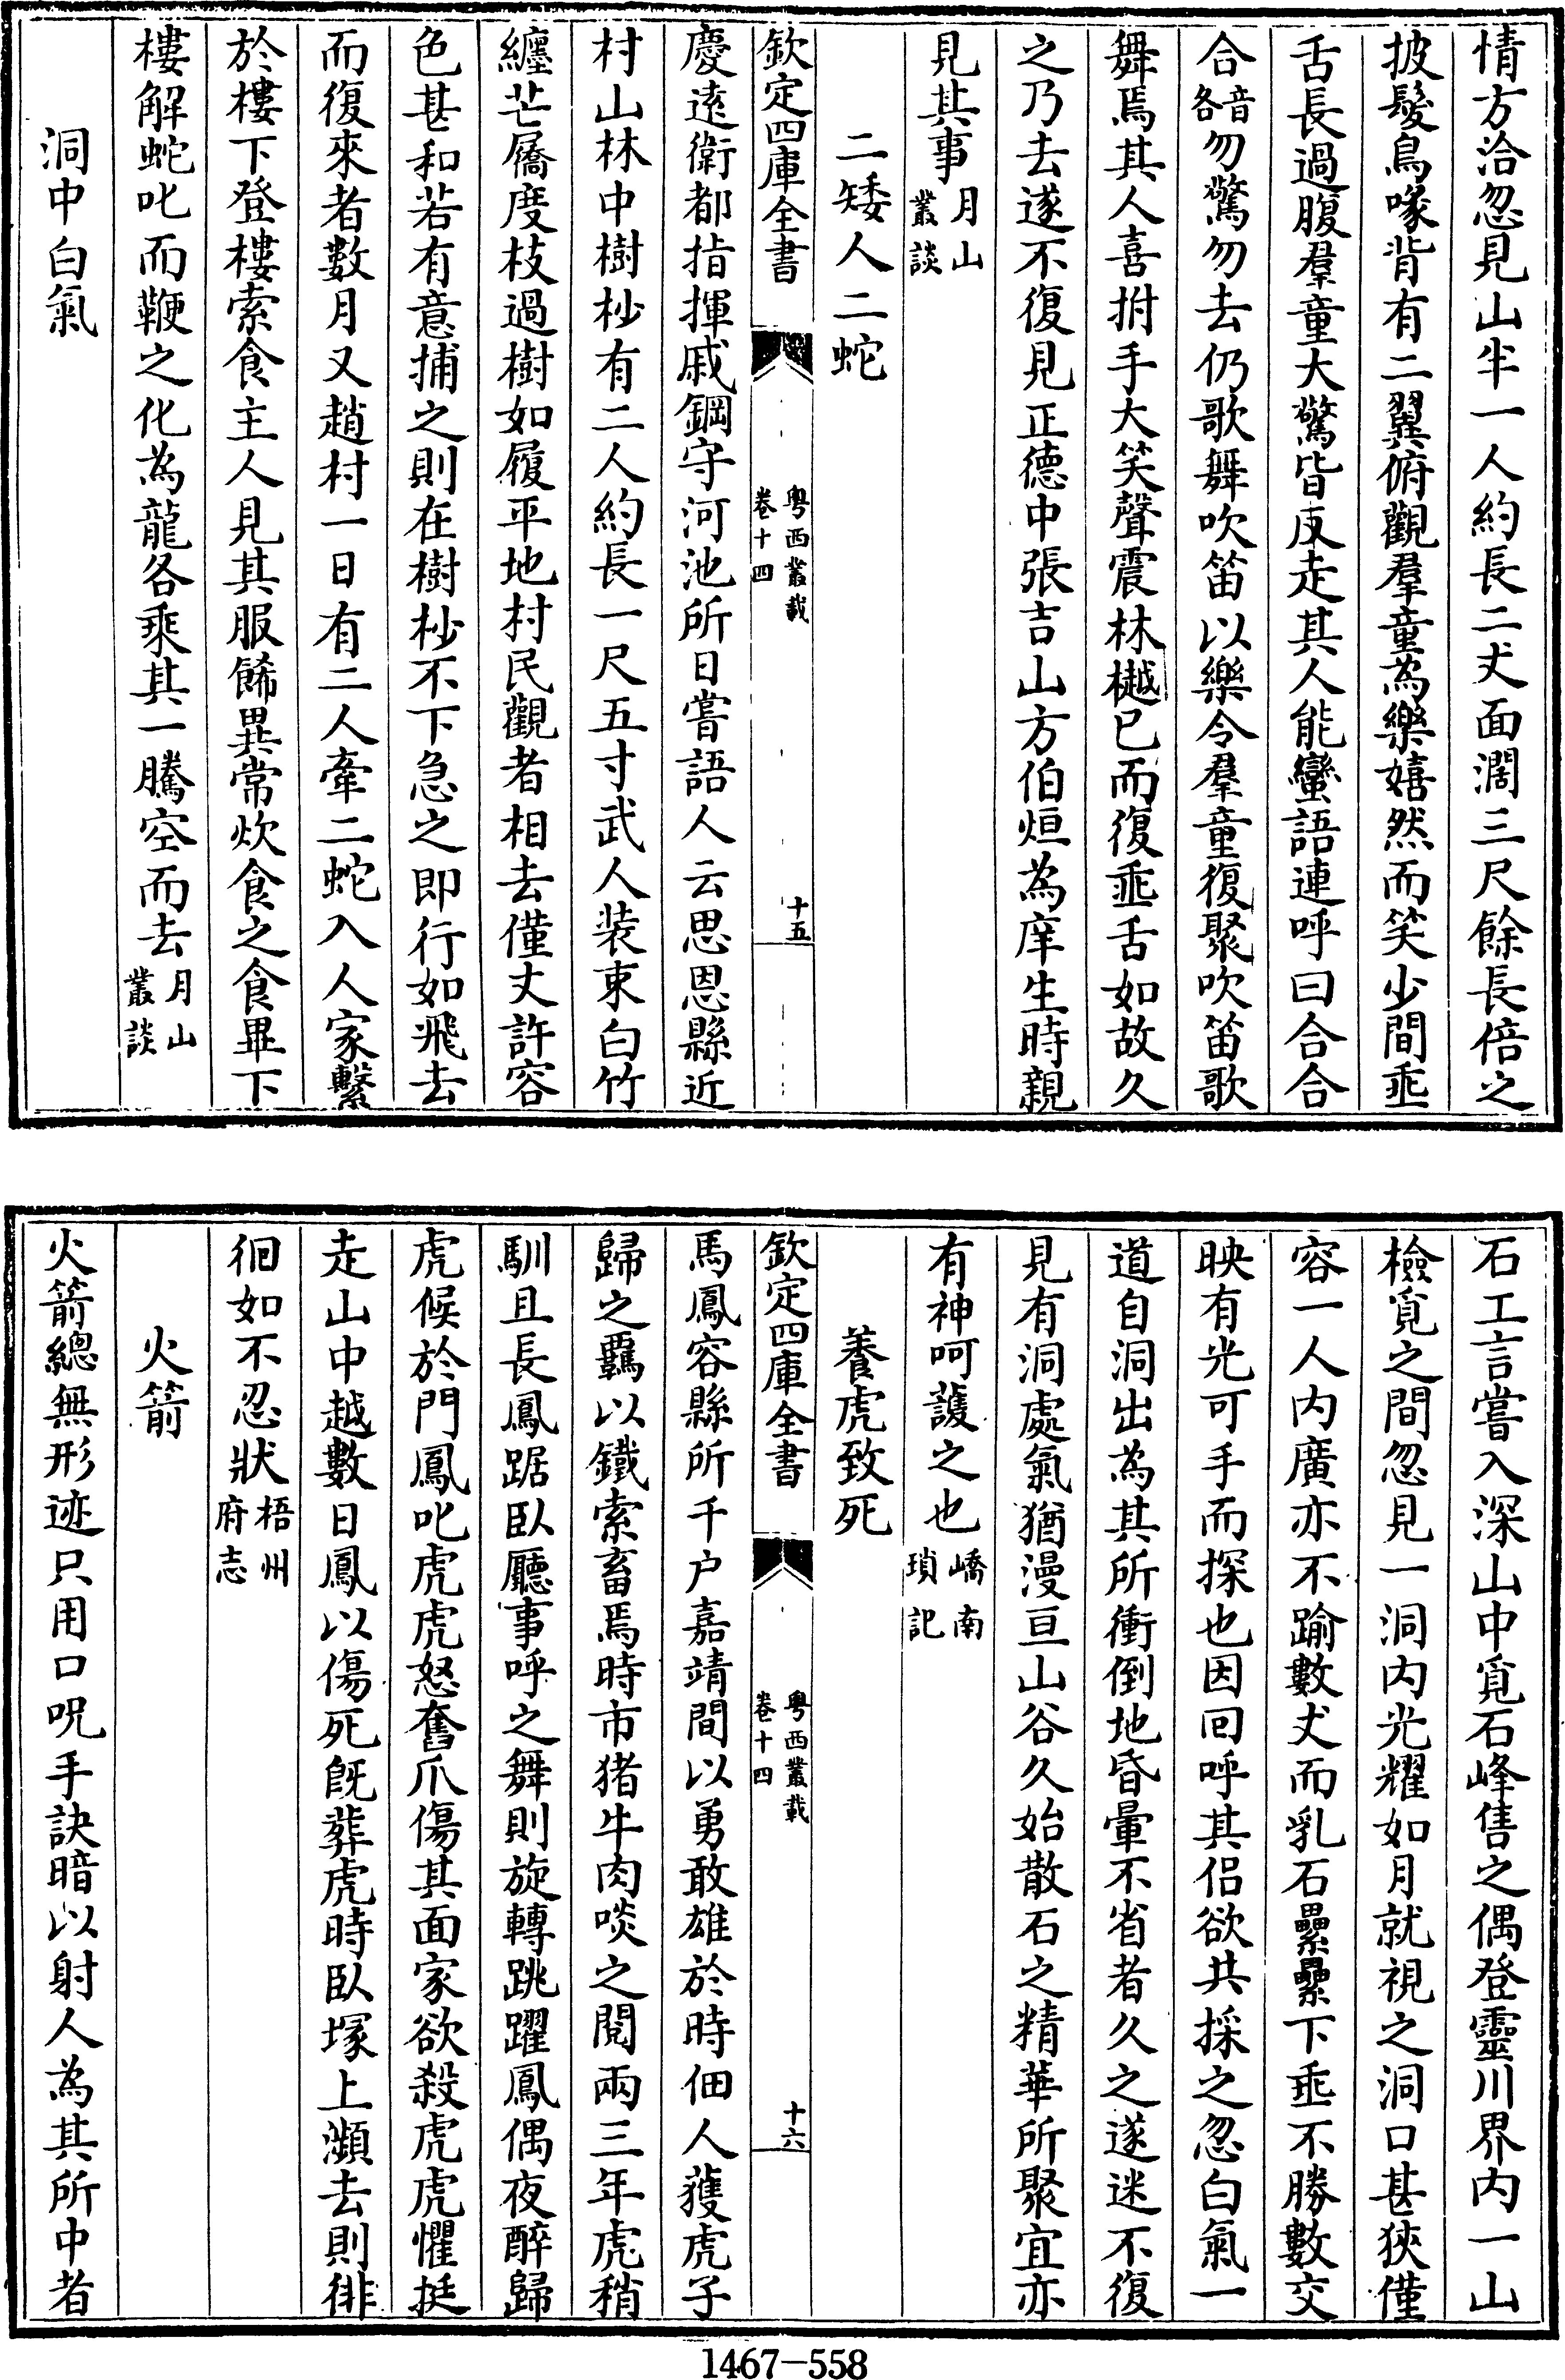 情方洽忽見山半一人約長二丈面濶三尺餘長倍之
披髮鳥喙背有二翼俯觀羣童為樂嬉然而笑少間乖
舌長過腹羣童大驚皆反走其人能蠻語連呼曰合合
合音各勿驚勿去仍歌舞吹笛以樂令羣童復聚吹笛歌
舞焉其人喜拊手大笑聲震林樾已而復乖舌如故久
之乃去遂不復見正德中張吉山方伯烜為庠生時親
見其事月山叢談
二矮人二蛇
欽定四庫全書
粵西叢載
卷十四
十五
慶遠衛都指揮戚鋼守河池所日嘗語人云思恩縣近
村山林中樹杪有二人約長一尺五寸武人装束白竹
纏芒屩度枝過樹如履平地村民觀者相去僅丈許容
色甚和若有意捕之則在樹杪不下急之即行如飛去
而復來者數月又趙村一日有二人牽二蛇入人家繫
於樓下登樓索食主人見其服餙異常炊食之食畢下
樓解蛇叱而鞭之化為龍各乘其一騰空而去月山叢談
洞中白氣
石工言嘗入深山中覓石峰售之偶登靈川界内一山
檢覓之間忽見一洞内光耀如月就視之洞口甚狹僅
容一人内廣亦不踰數丈而乳石纍纍下乖不勝數交
映有光可手而探也因回呼其侣欲共採之忽白氣一
道自洞出為其所衝倒地昏暈不省者久之遂迷不復
見有洞處氣猶漫亘山谷久始散石之精華所聚宜亦
有神呵護之也嶠南瑣記
養虎致死
欽定四庫全書
粵西叢載
卷十四
十六
馬鳳容縣所千户嘉靖間以勇敢雄於時佃人獲虎子
歸之覊以鐵索畜焉時市猪牛肉啖之閱兩三年虎稍
馴且長鳳踞臥廳事呼之舞則旋轉跳躍鳳偶夜醉歸
虎候於門鳳叱虎虎怒奮爪傷其面家欲殺虎虎懼挺
走山中越數日鳳以傷死旣葬虎時臥塚上瀕去則徘
徊如不忍狀梧州府志
火箭
火箭總無形迹只用口呪手訣暗以射人為其所中者
1467-558